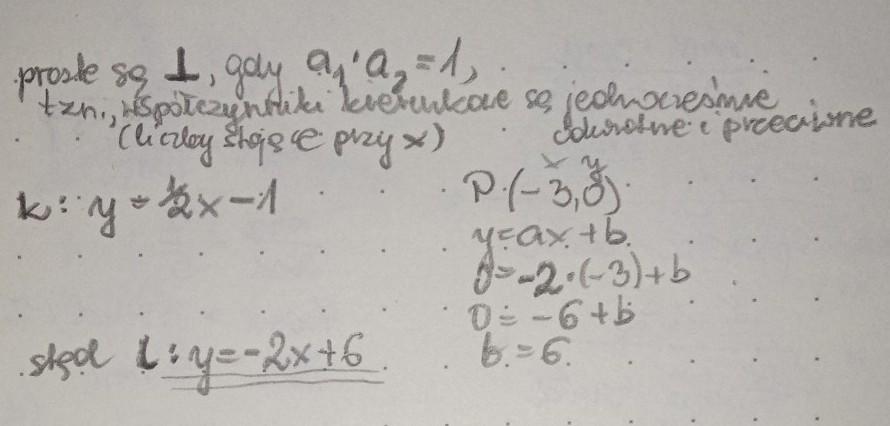 proste są ⊥, gdy a₁·a₂=1,
tzn., współczynniki kierunkowe są jednocześnie
(liczby stojące przy x) odwrotne i przeciwne
k: y=½x-1
x y
P(-3,0)
y=ax+b
0=-2·(-3)+b
0=-6+b
b=6
stąd l: y=-2x+6